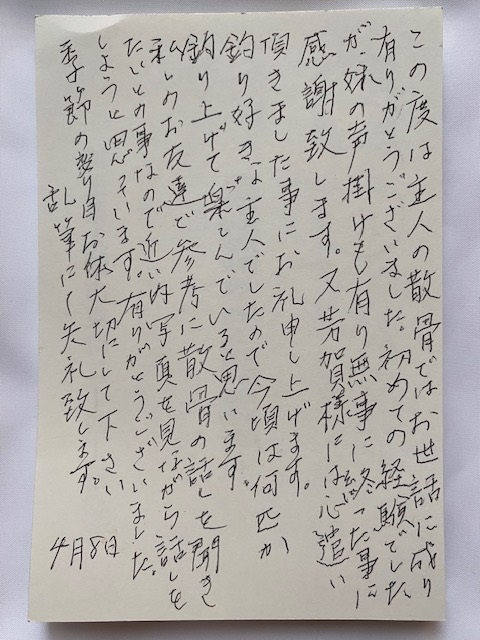 この度は主人の散骨ではお世話に成り
有りがとうございました。初めての経験でした
が、妹の声掛けも有り無事に終った事に
感謝致します。又芳賀様には心遣い
頂きました事にお礼申し上げます。
釣り好きな主人でしたので今頃は何匹か
釣り上げて楽しんでいると思います。
私しのお友達で参考に散骨の話しを聞き
たいとの事なので近い内写真を見ながら話しを
しようと思っています。有りがとうございました。
季節の変り目お体大切にして下さい
乱筆にて失礼致します。
4月8日